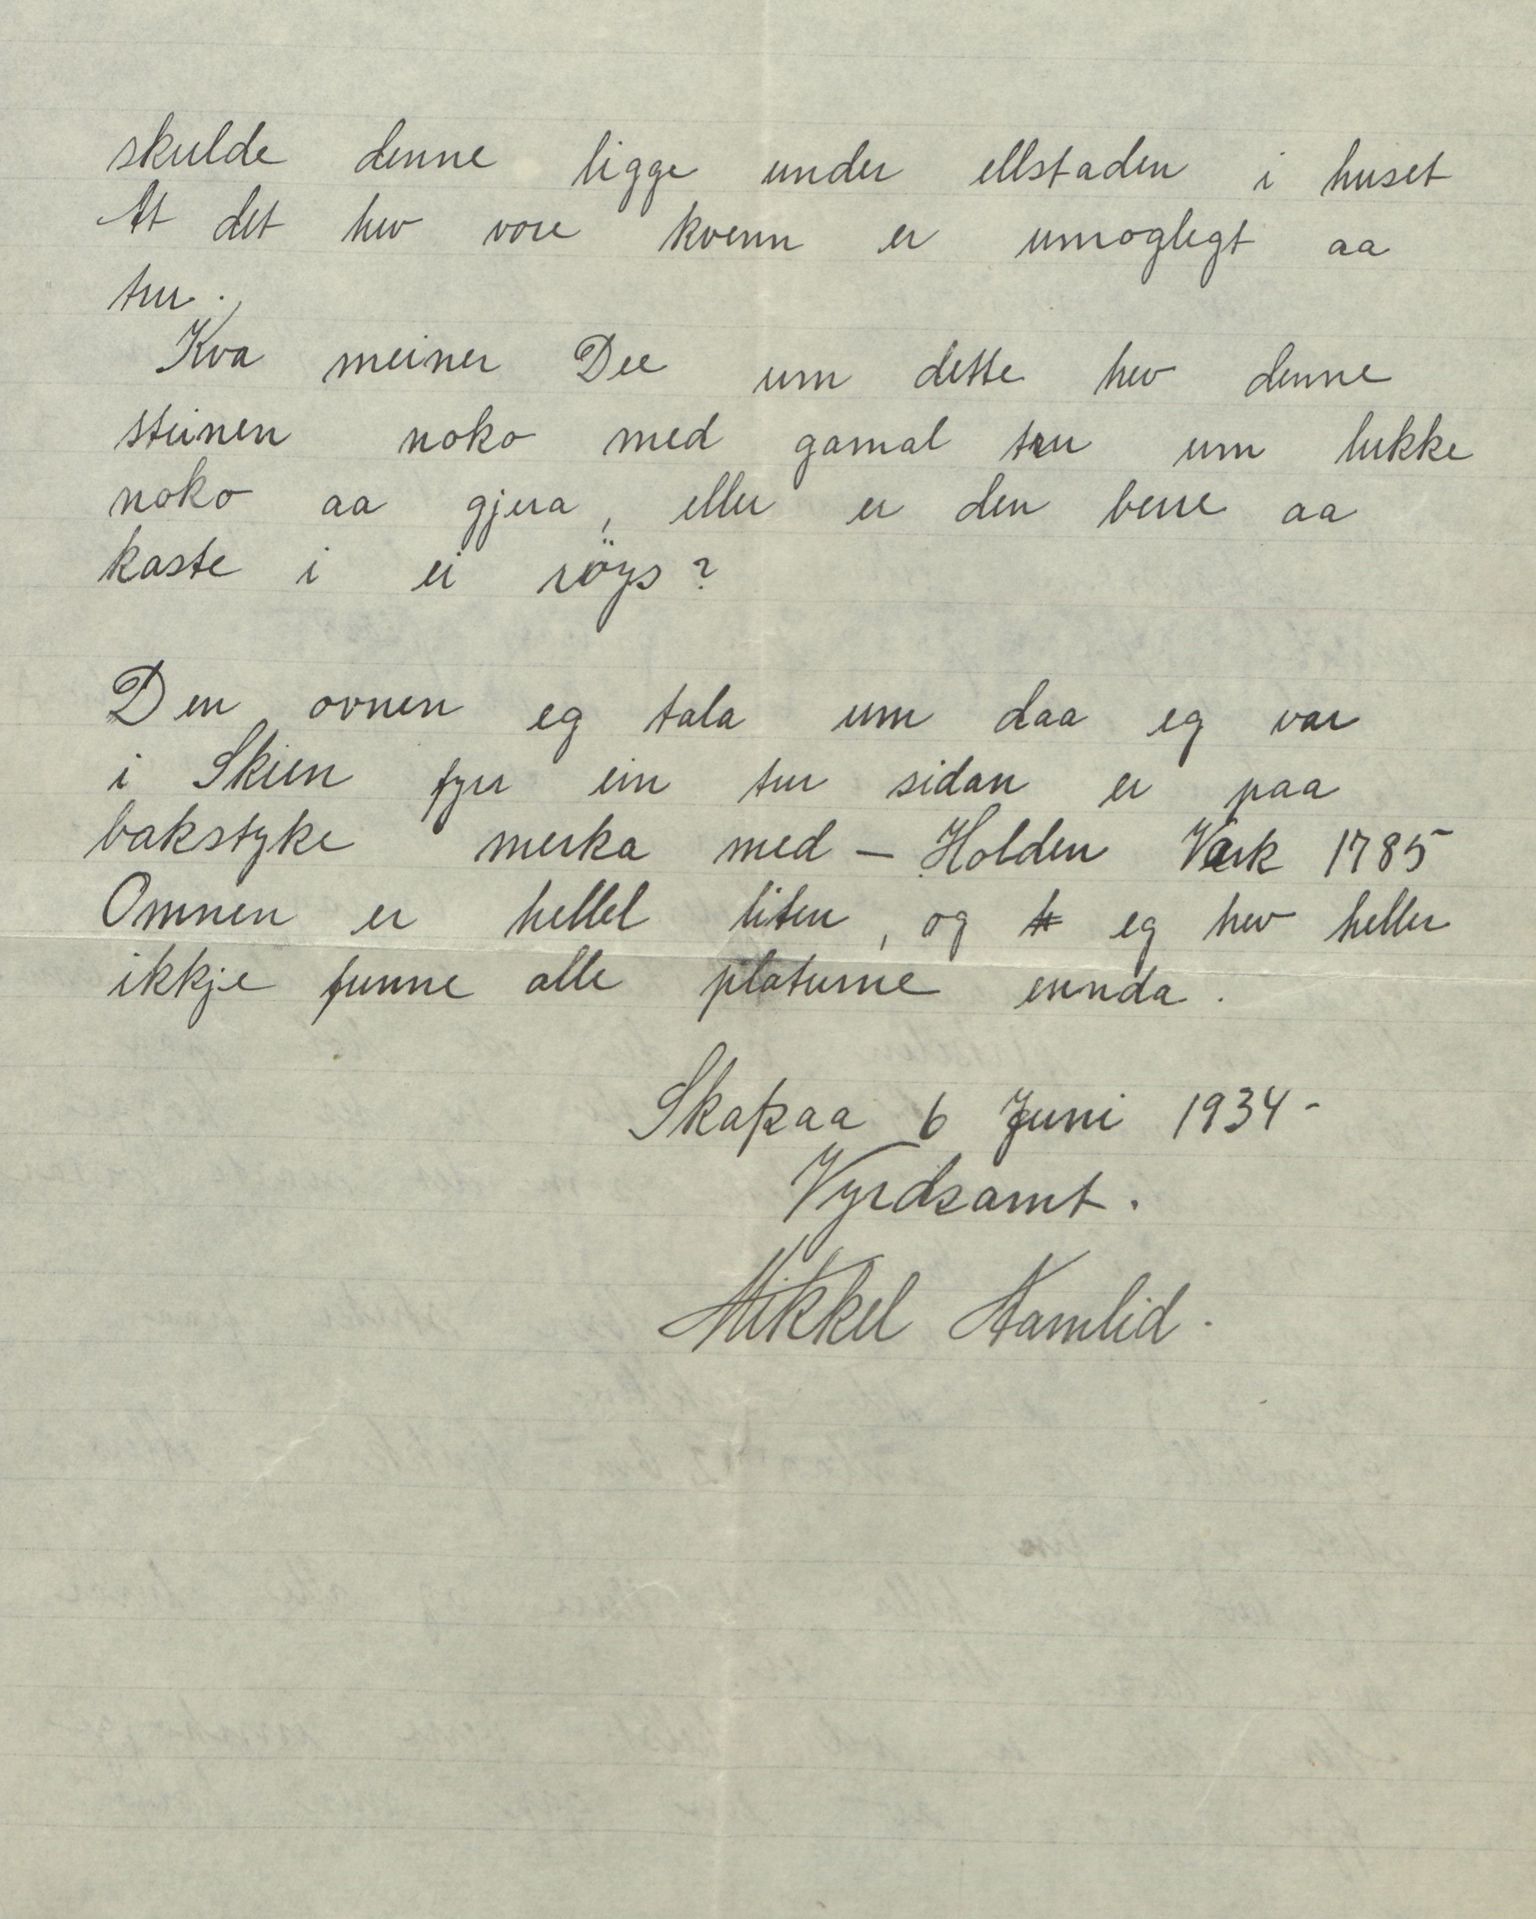 skulde denne ligge under ellstaden i huset
At det hev vore kvenn er umoglegt aa
tru.
Kva meiner Dee um dette hev denne
steinen noko med gamal tru um lukke
noko aa gjera, eller er den berre aa
kaste i ei röys?
Den ovnen eg tala um daa eg var
i Skien fyrr ein tur sidan er paa
bakstyke merka med - Holden Værk 1785
Omnen er hellel liten, og eg hev heller
ikkje funne alle platurne ennda.
Skapaa 6 Juni 1934-
Vyrdsamt.
Mikkel Kamlid.